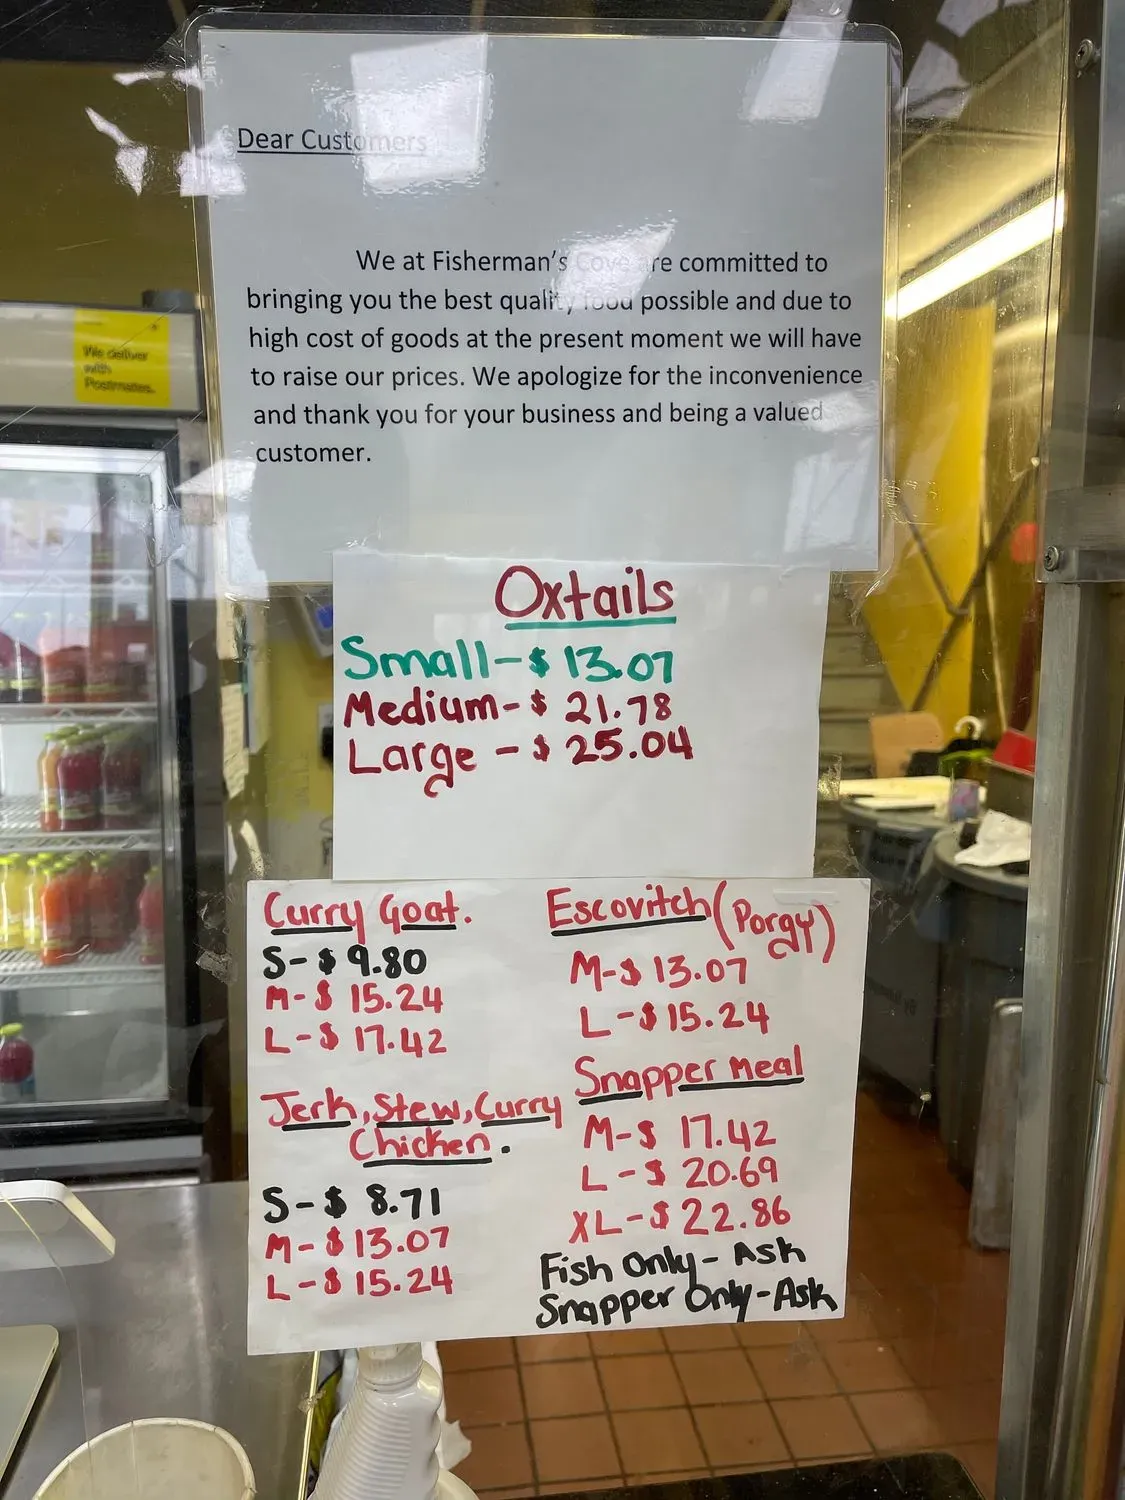 Dear Customers
We at Fisherman's Cove are committed to
bringing you the best quality food possible and due to
high cost of goods at the present moment we will have
to raise our prices. We apologize for the inconvenience
and thank you for your business and being a valued
customer.
We deliver
with
Postmates.
Oxtails
Small-$ 13.07
Medium-$ 21.78
Large - $ 25.04
Curry Goat.
S-$ 9.80
M-$ 15.24
L-$ 17.42
Jerk, Stew, Curry
Chicken.
S-$ 8.71
M-$13.07
L-$15.24
Escovitch (Porgy)
M-$ 13.07
L-$15.24
Snapper Meal
M-$ 17.42
L-$ 20.69
XL-$22.86
Fish Only- Ask
Snapper Only-Ask